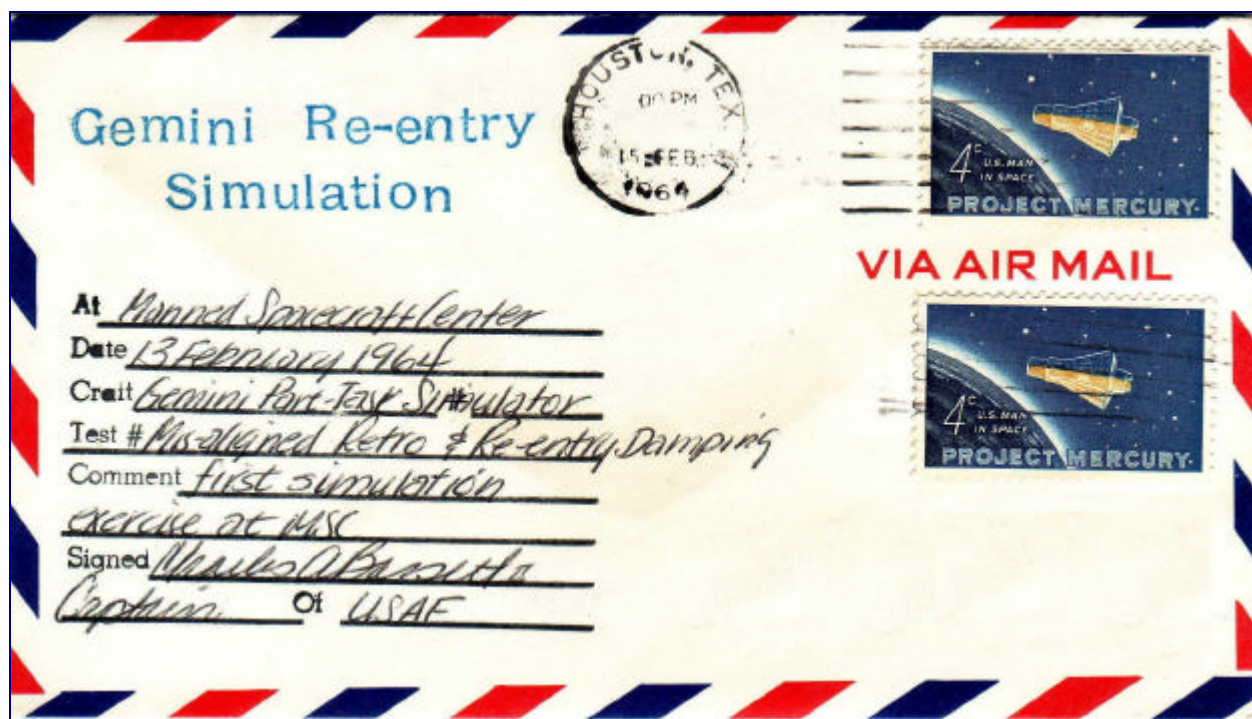 Gemini Re-entry
Simulation
HOUSTON, TEX.
00 PM
15 FEB.
1964
4c U.S. MAN
IN SPACE
PROJECT MERCURY
VIA AIR MAIL
4c U.S. MAN
IN SPACE
PROJECT MERCURY
At Manned Spacecraft Center
Date 13 February 1964
Craft Gemini Part-Task Simulator
Test # Mis-aligned Retro & Re-entry Damping
Comment first simulation
exercise at MSC
Signed Charles A Bassett II
Captain Of USAF